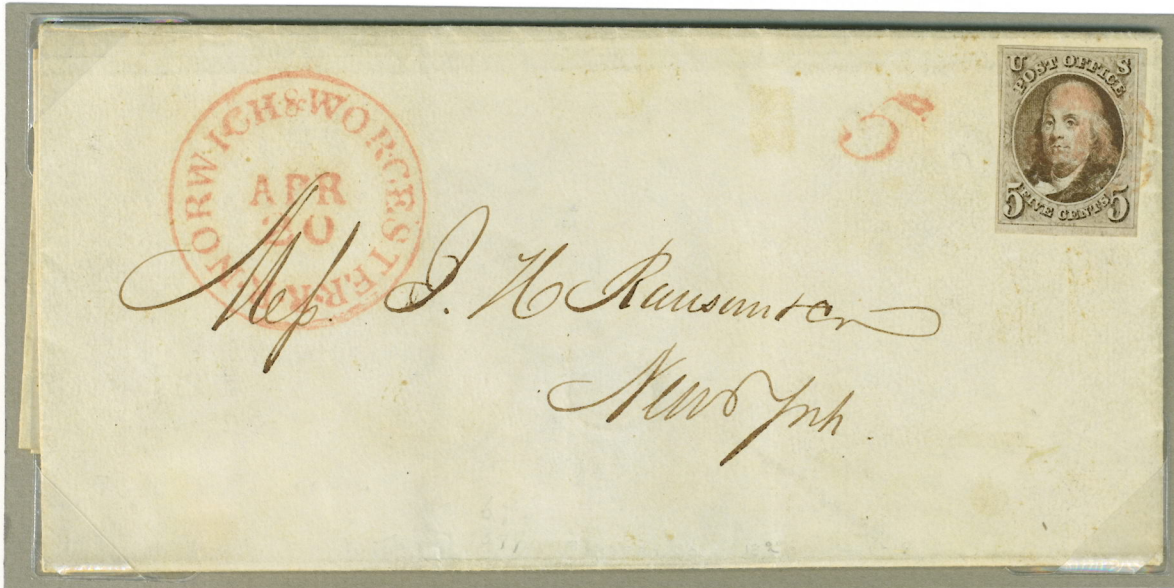 NORWICH & WORCESTER R.R.
APR
20
5
U S
POST OFFICE
5 FIVE CENTS 5
Mess. J. H. Ransom & Co
New York.